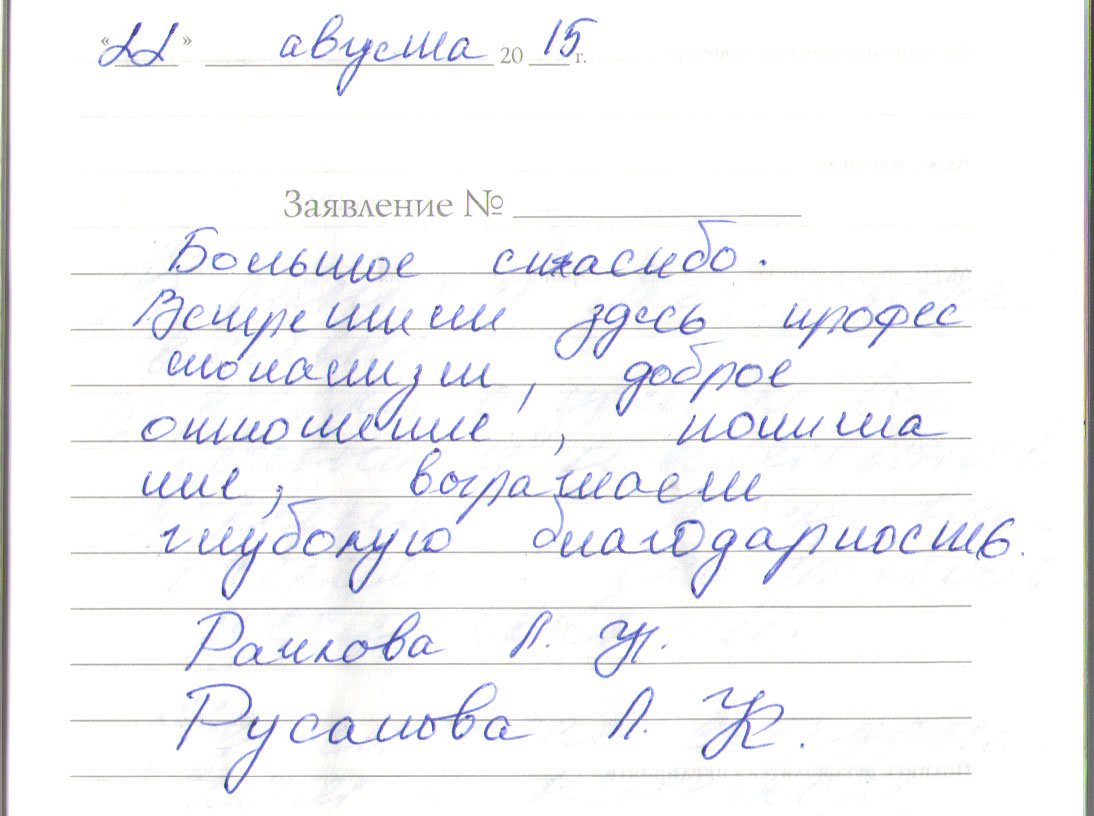 «22» августа 2015 г.
Заявление №
Большое спасибо.
Встретили здесь професс
ионализм, доброе
отношение, понима
ние, выражаем
глубокую благодарность.
Раилова Л. И.
Русанова Л. К.